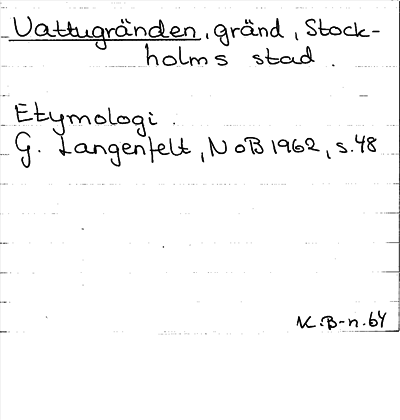 Vattugränden, gränd, Stock-
holms stad.
Etymologi.
G. Langenfelt, NoB 1962, s.48
K.B-n.64